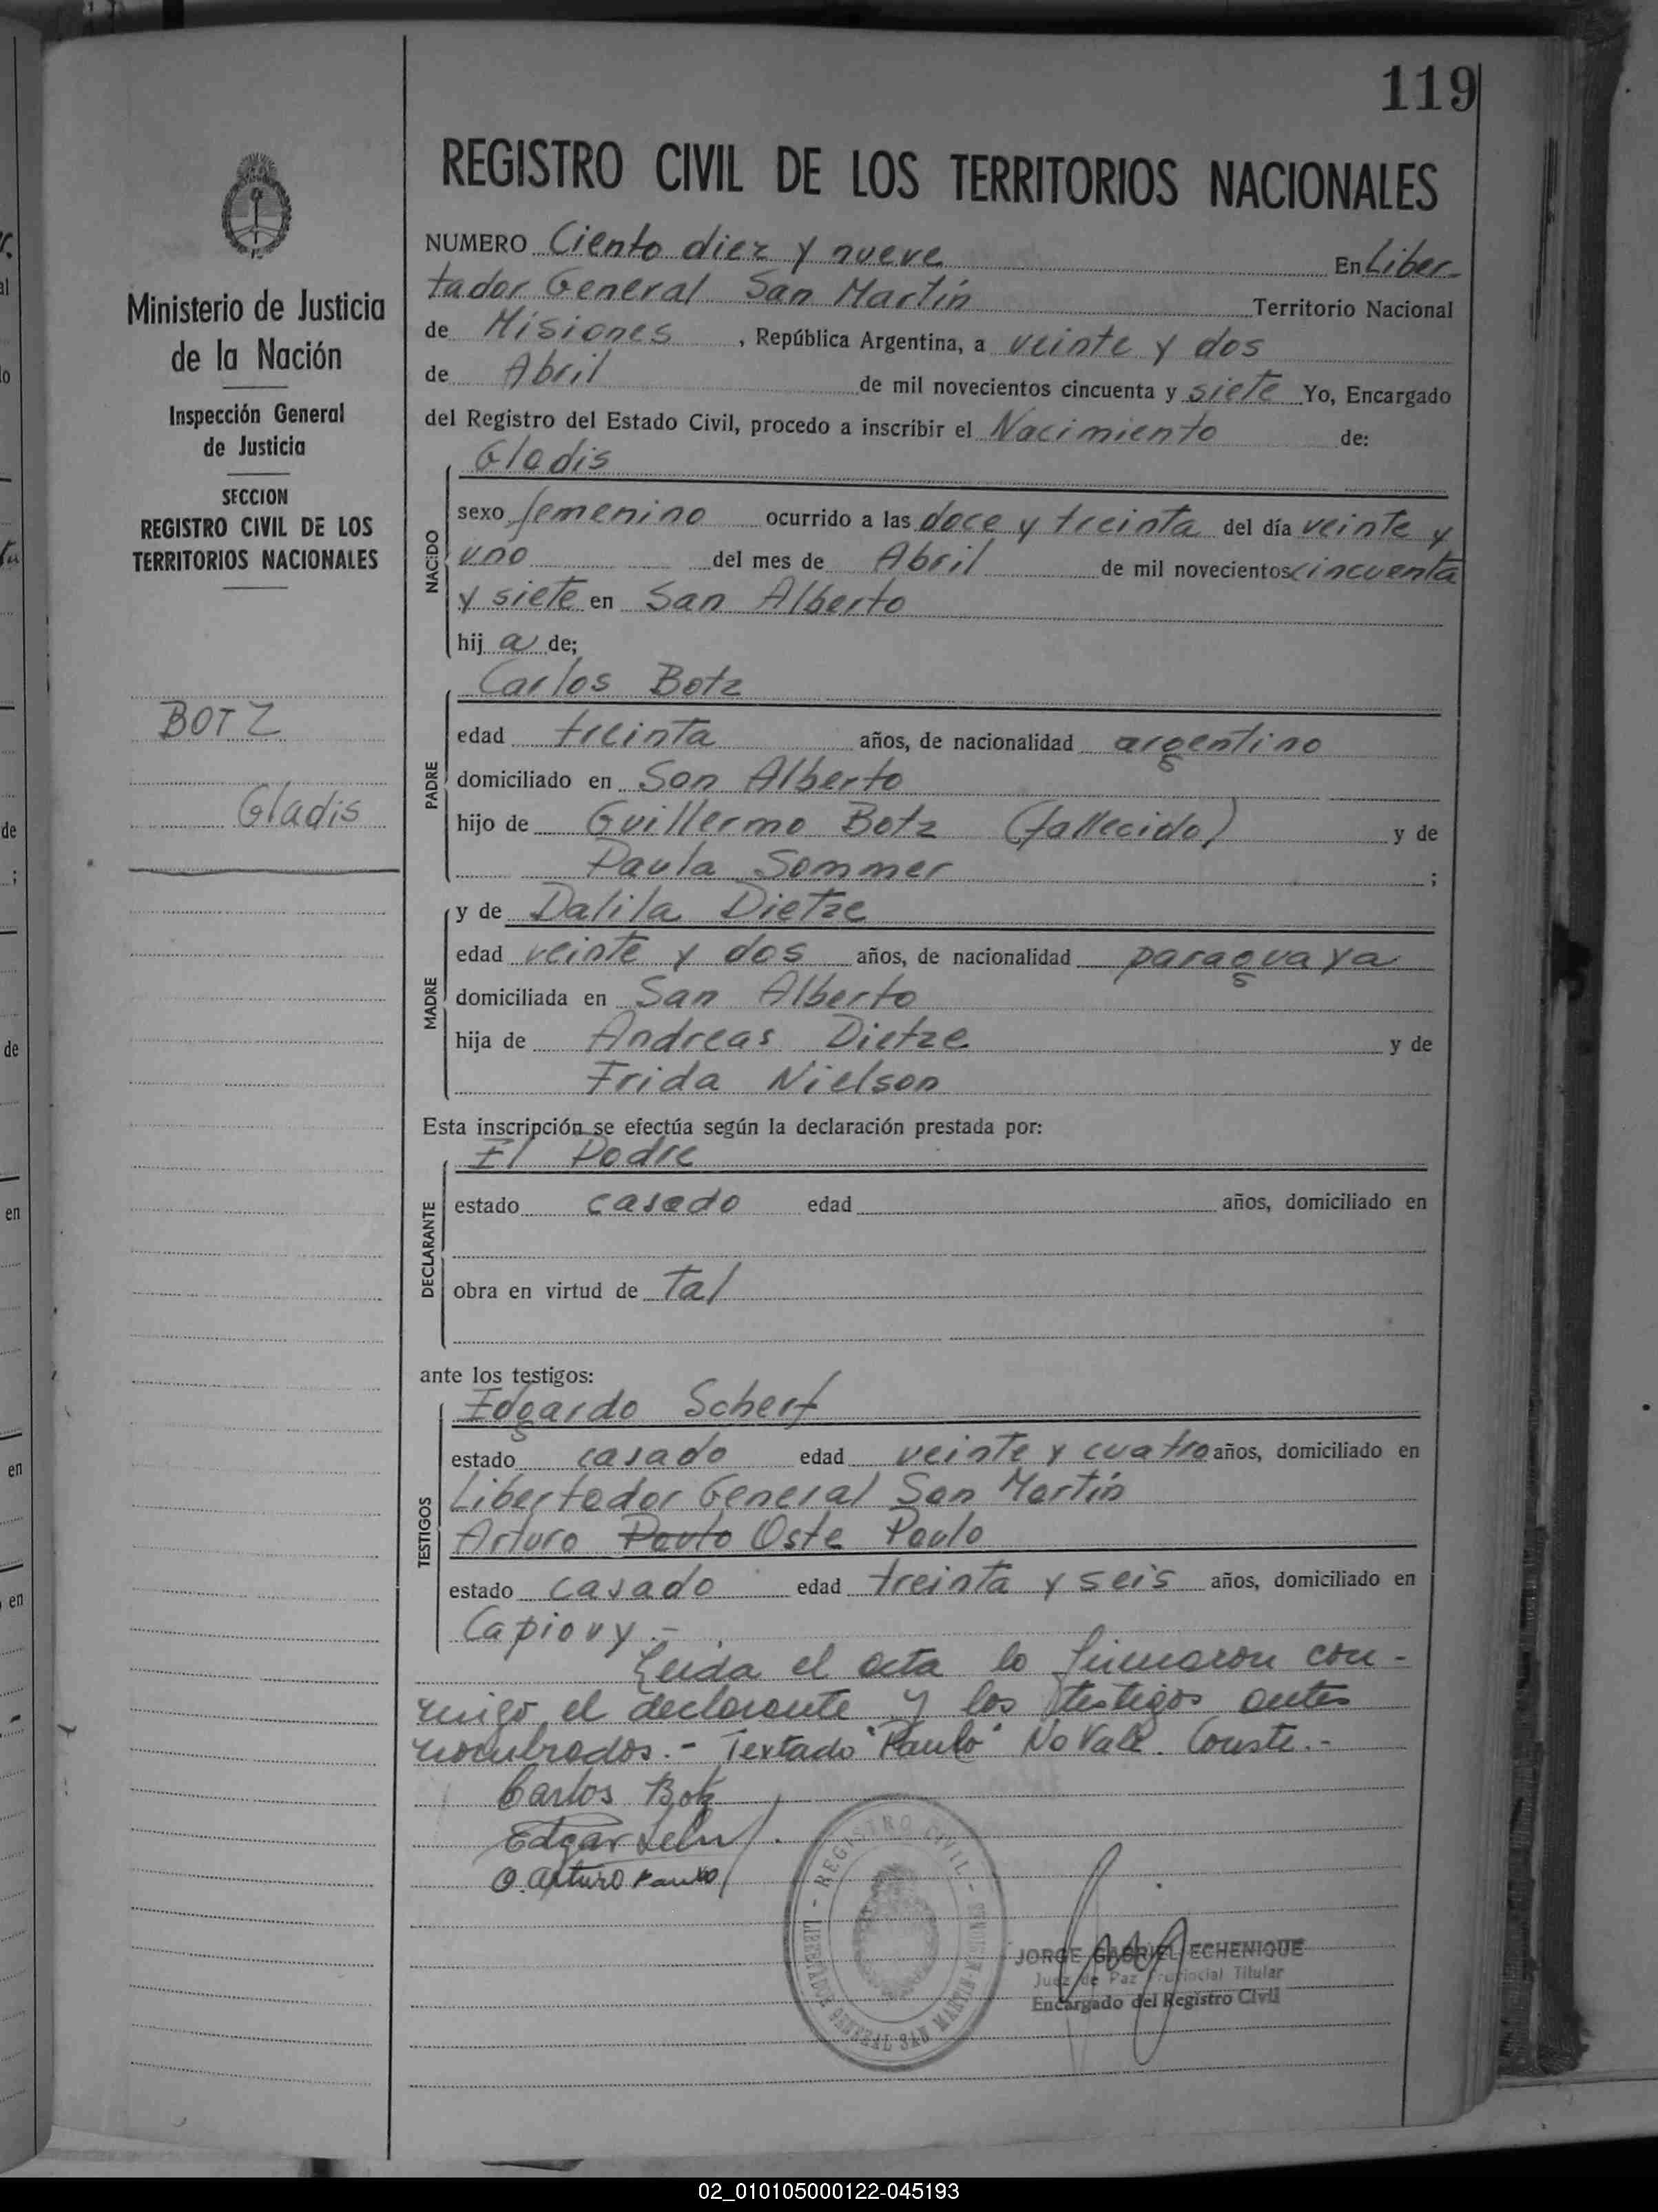 119
REGISTRO CIVIL DE LOS TERRITORIOS NACIONALES
Ministerio de Justicia
de la Nación
Inspección General
de Justicia
SECCION
REGISTRO CIVIL DE LOS
TERRITORIOS NACIONALES
BOTZ
Gladis
NUMERO Ciento diez y nueve En Liber-
tador General San Martín Territorio Nacional
de Misiones, República Argentina, a veinte y dos
de Abril de mil novecientos cincuenta y siete Yo, Encargado
del Registro del Estado Civil, procedo a inscribir el Nacimiento de:
Gladis
NACIDO
sexo femenino ocurrido a las doce y treinta del día veinte y
uno del mes de Abril de mil novecientos cincuenta
y siete en San Alberto
hij a de;
Carlos Botz
PADRE
edad treinta años, de nacionalidad argentino
domiciliado en San Alberto
hijo de Guillermo Botz (fallecido) y de
Paula Sommer ;
y de Dalila Dietze
MADRE
edad veinte y dos años, de nacionalidad paraguaya
domiciliada en San Alberto
hija de Andreas Dietze y de
Frida Nielson
Esta inscripción se efectúa según la declaración prestada por:
El Padre
DECLARANTE
estado casado edad años, domiciliado en
obra en virtud de Tal
ante los testigos:
Edgardo Scherf
TESTIGOS
estado casado edad veinte y cuatro años, domiciliado en
Libertador General San Martín
Arturo Paulo Oste Paulo
estado casado edad treinta y seis años, domiciliado en
Capiovy.-
Leida el acta lo firmaron con-
migo el declarante y los testigos antes
nombrados.- Textado "Paulo" No Vale. Conste.-
Carlos Botz
Edgar
O. Arturo Paulo
REGISTRO CIVIL
LIBERTADOR GENERAL SAN MARTIN
JORGE GABRIEL ECHENIQUE
Juez de Paz Provincial Titular
Encargado del Registro Civil
02_010105000122-045193